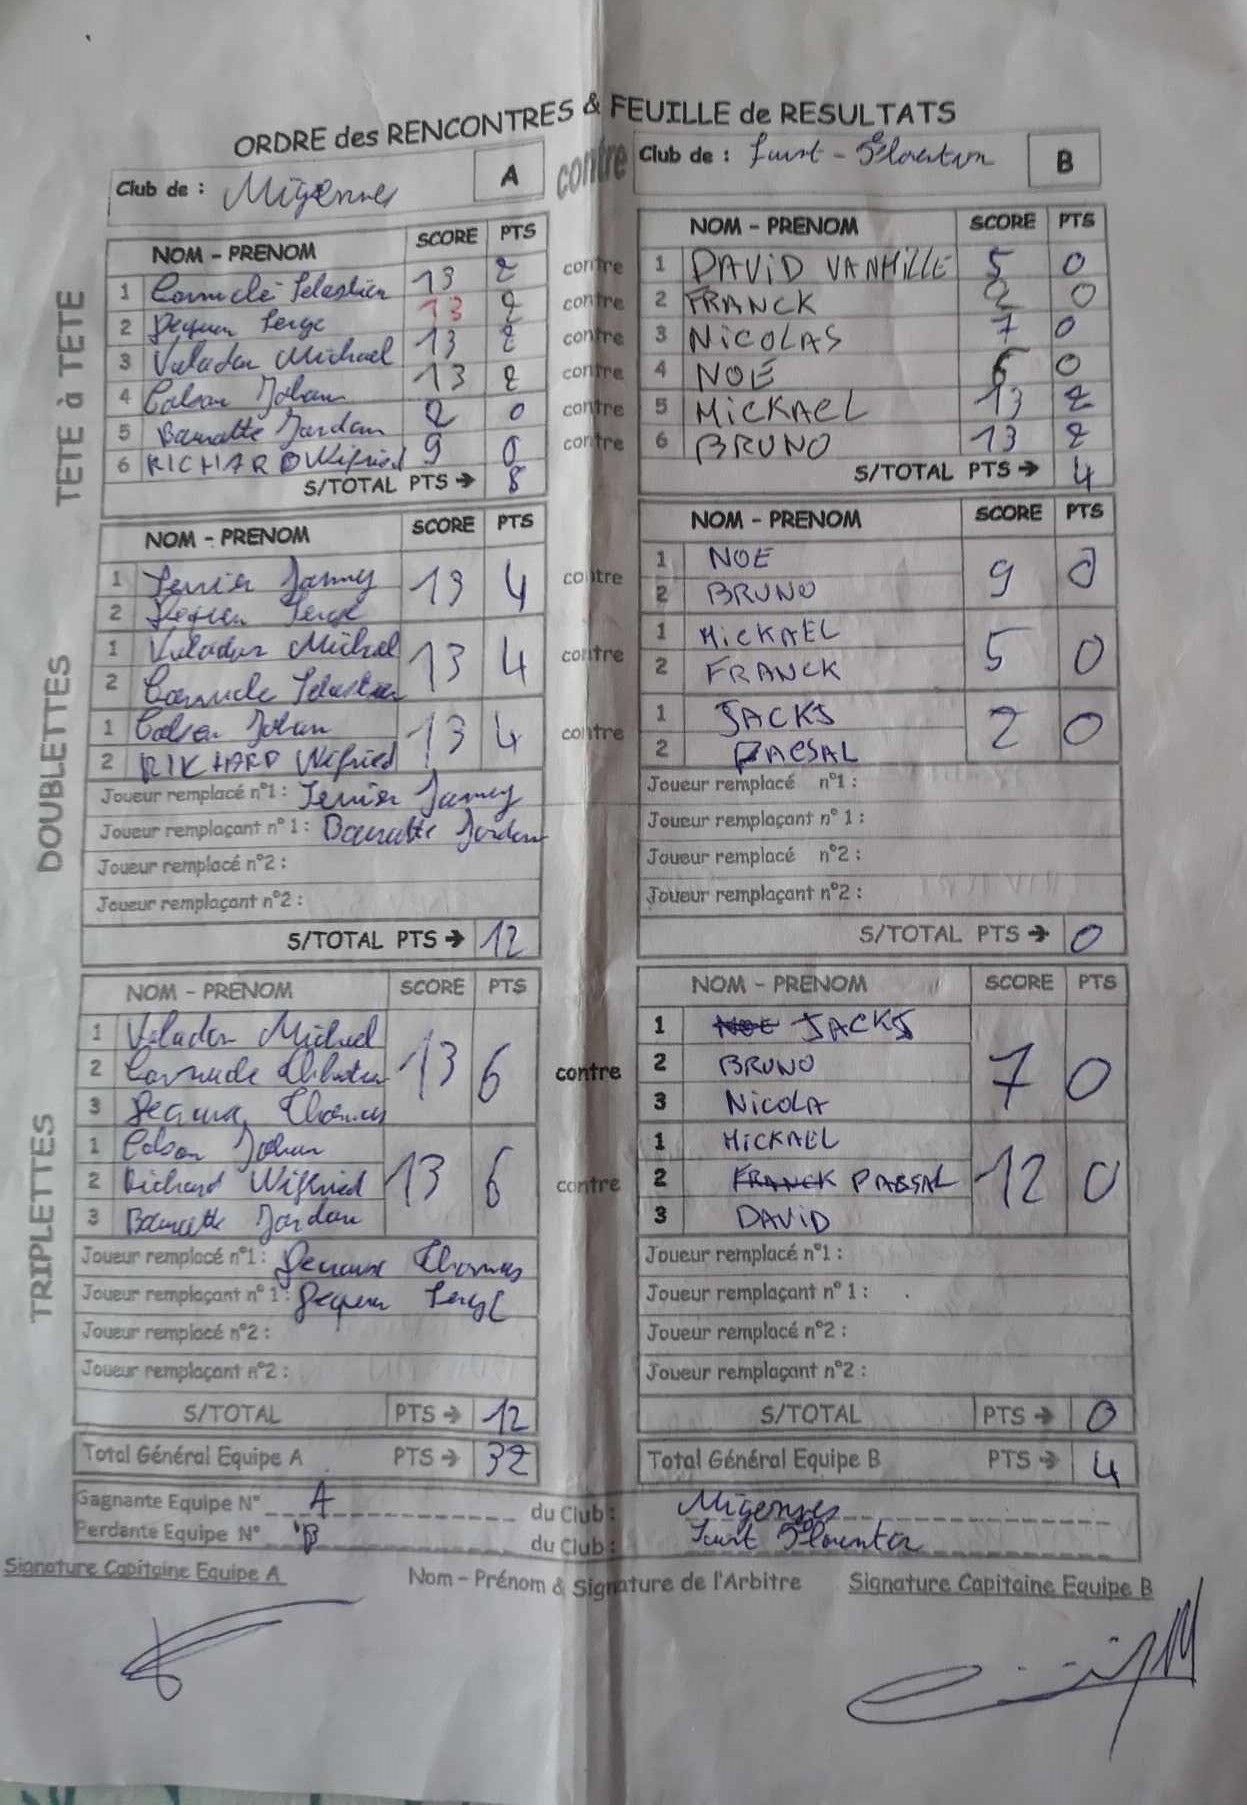 ORDRE des RENCONTRES & FEUILLE de RESULTATS
Club de : Migennes A contre Club de : Saint - Florentin B
TETE à TETE
NOM - PRENOM SCORE PTS NOM - PRENOM SCORE PTS
1 Sebastien 13 2 contre 1 DAVID VANHILLE 5 0
2 Serge 13 2 contre 2 FRANCK 2 0
3 Valadon Michael 13 2 contre 3 NICOLAS 7 0
4 Colson Johan 13 2 contre 4 NOE 6 0
5 Jordan 2 0 contre 5 MICKAEL 13 2
6 RICHARD Wilfried 9 0 contre 6 BRUNO 13 2
S/TOTAL PTS → 8 S/TOTAL PTS → 4
DOUBLETTES
NOM - PRENOM SCORE PTS NOM - PRENOM SCORE PTS
1 13 4 contre 1 NOE 9 0
2 Serge 2 BRUNO
1 Valadon Michael 13 4 contre 1 MICKAEL 5 0
2 Sebastien 2 FRANCK
1 Colson Johan 13 4 contre 1 JACKS 2 0
2 RIKHARD Wilfried 2 PACSAL
Joueur remplacé n°1 : Joueur remplacé n°1 :
Joueur remplaçant n° 1 : Jordan Joueur remplaçant n° 1 :
Joueur remplacé n°2 : Joueur remplacé n°2 :
Joueur remplaçant n°2 : Joueur remplaçant n°2 :
S/TOTAL PTS → 12 S/TOTAL PTS → 0
TRIPLETTES
NOM - PRENOM SCORE PTS NOM - PRENOM SCORE PTS
1 Valadon Michael 13 6 contre 1 NOE JACKS 7 0
2 2 BRUNO
3 Thomas 3 NICOLA
1 Colson Johan 13 6 contre 1 MICKAEL 12 0
2 Richard Wilfried 2 FRANCK PASSAL
3 Jordan 3 DAVID
Joueur remplacé n°1 : Thomas Joueur remplacé n°1 :
Joueur remplaçant n° 1 : Serge Joueur remplaçant n° 1 :
Joueur remplacé n°2 : Joueur remplacé n°2 :
Joueur remplaçant n°2 : Joueur remplaçant n°2 :
S/TOTAL PTS → 12 S/TOTAL PTS → 0
Total Général Equipe A PTS → 32 Total Général Equipe B PTS → 4
Gagnante Equipe N° A du Club : Migennes
Perdante Equipe N° B du Club : Saint Florentin
Signature Capitaine Equipe A Nom - Prénom & Signature de l'Arbitre Signature Capitaine Equipe B